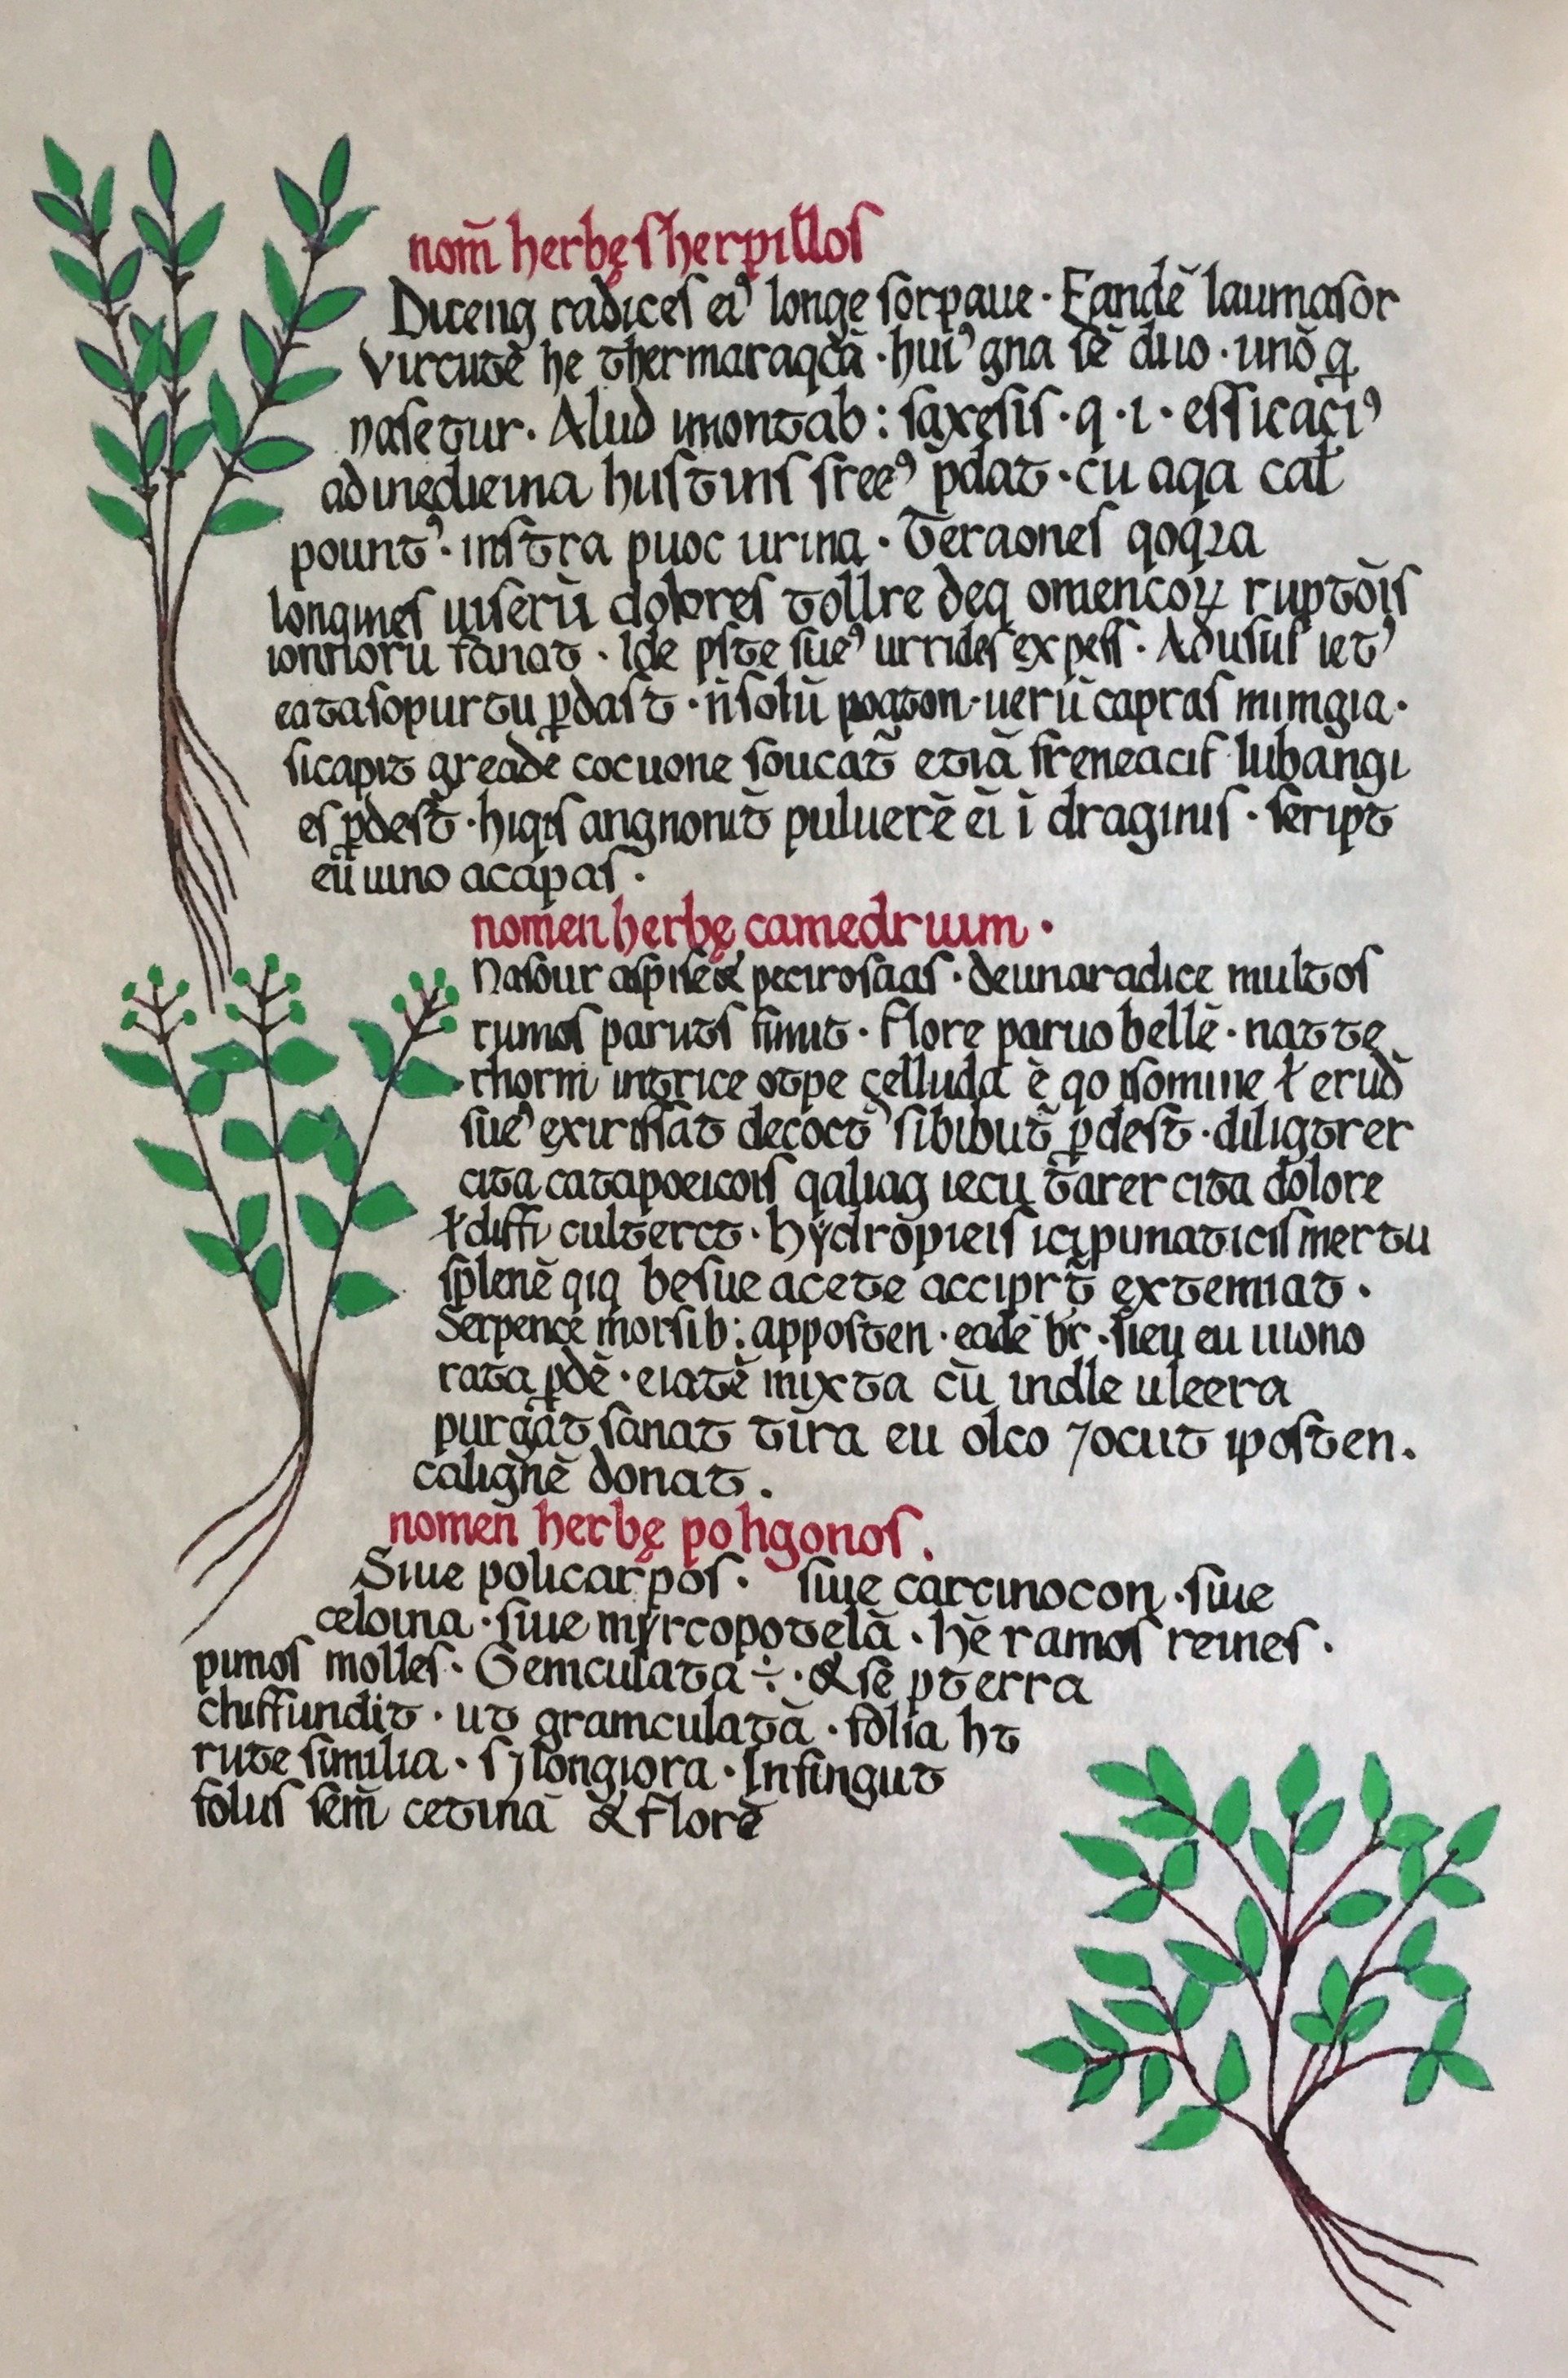 nom̄ herbę sherpillos
Diceng radices ei⁹ longe sorpaue · Eandē laumasor
Virtutē he thermaraqcā · hui⁹ gna sē duo · unō q
nasetur · Alud montab : saxesis · q · i · efficaci⁹
ad inedicina hustins sree⁹ pdat · cu aqa cal
pount⁹ · instra puoc urina · Teraones qoq2a
longines uiserū dolores tollre deq omencoꝝ ruptōis
ionnoru sanat · Ide pste sue⁹ urrides ex pess · Adusus iet⁹
eatasopurtu pdast · n̄ solū pogton · uerū capras mimgia ·
sicapit greade cocuone soucat̄ etiā freneacis lubangi
es pdest · hiqis angnonit̄ puluerē ei ī draginis · sript̄
eū uino acapas ·
nomen herbę camedruum ·
Nasour aspise& pecirosaas · deunaradice multos
rumos paruts simit · flore paruo bellē · natte
rhorm intrice otpe çelluda ē qo nomine ł erud̄
sue⁹ exirisāt decoct⁹ sibibut̄ pdest · diligtrer
cita catapoeicois qaliag iecu t̄arer cita dolore
ł diffi culterct · hẏdropieis icipunaticis mertu
splenē qiq besue acete acciprt̄ extemiat ·
Serpence morsib : apposten · eadē br̄ · sieu eu uiono
rata pdē · eiatē mixta cū indle uleera
purgāt sanat tira eu olco ⁊ocut iposten .
caligñē donat .
nomen herbę pohgonos .
Siue policarpos · siue carcinocon · siue
celoina · siue myrcopotelā · hē ramos reines ·
pimos molles · Geniculata ÷ · & sē p terra
chiffundit · ut gramculatā · folia ht
rute similia · sꝫ longiora · Insingut
folus sem̄ cetinā & florē